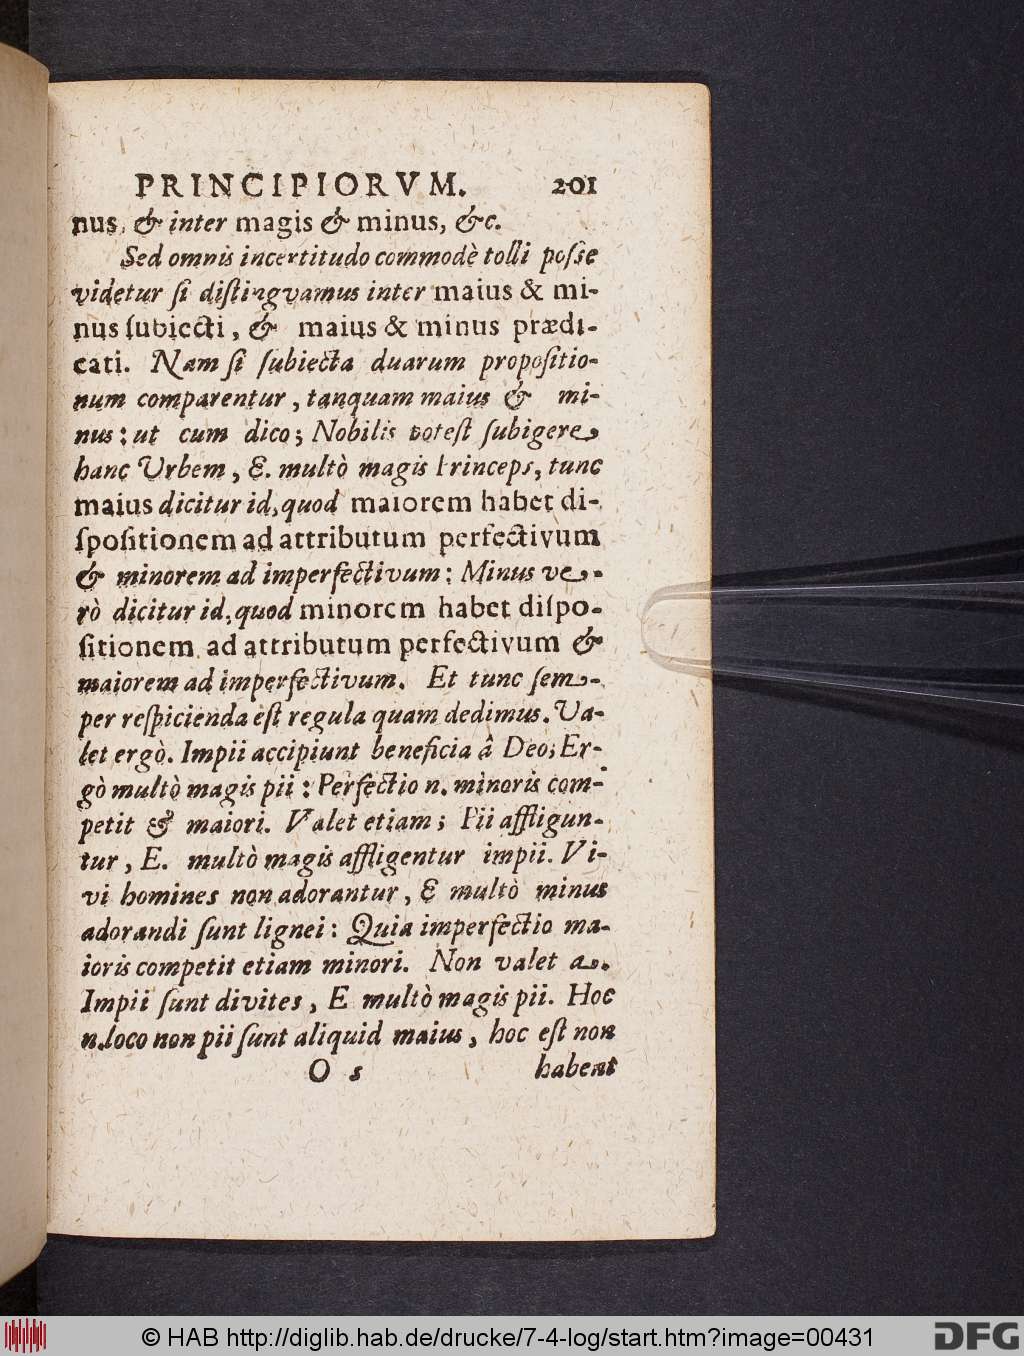 PRINCIPIORVM. 201
nus, & inter magis & minus, &c.
Sed omnis incertitudo commodè tolli posse
videtur si distingvamus inter maius & mi-
nus subiecti, & maius & minus prædi-
cati. Nam si subiecta duarum propositio-
num comparentur, tanquam maius & mi-
nus: ut cum dico; Nobilis potest subigere
hanc Urbem, E. multò magis Princeps, tunc
maius dicitur id, quod maiorem habet di-
spositionem ad attributum perfectivum
& minorem ad imperfectivum: Minus ve-
rò dicitur id, quod minorem habet dispo-
sitionem ad attributum perfectivum &
maiorem ad imperfectivum. Et tunc sem-
per respicienda est regula quam dedimus. Va-
let ergò. Impii accipiunt beneficia â Deo; Er-
gò multò magis pii: Perfectio n. minoris com-
petit & maiori. Valet etiam; Pii affligun-
tur, E. multò magis affligentur impii. Vi-
vi homines non adorantur, E multò minus
adorandi sunt lignei: Quia imperfectio ma-
ioris competit etiam minori. Non valet a.
Impii sunt divites, E multò magis pii. Hoc
n. loco non pii sunt aliquid maius, hoc est non
O 5 habent
© HAB http://diglib.hab.de/drucke/7-4-log/start.htm?image=00431 DFG